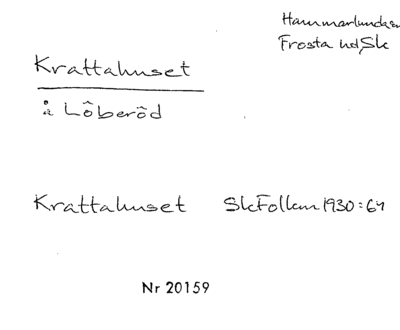 Hammarlunda sn
Frosta hd, Sk
Krattahuset
å Löberöd
Krattahuset SkFollem 1930:64
Nr 20159